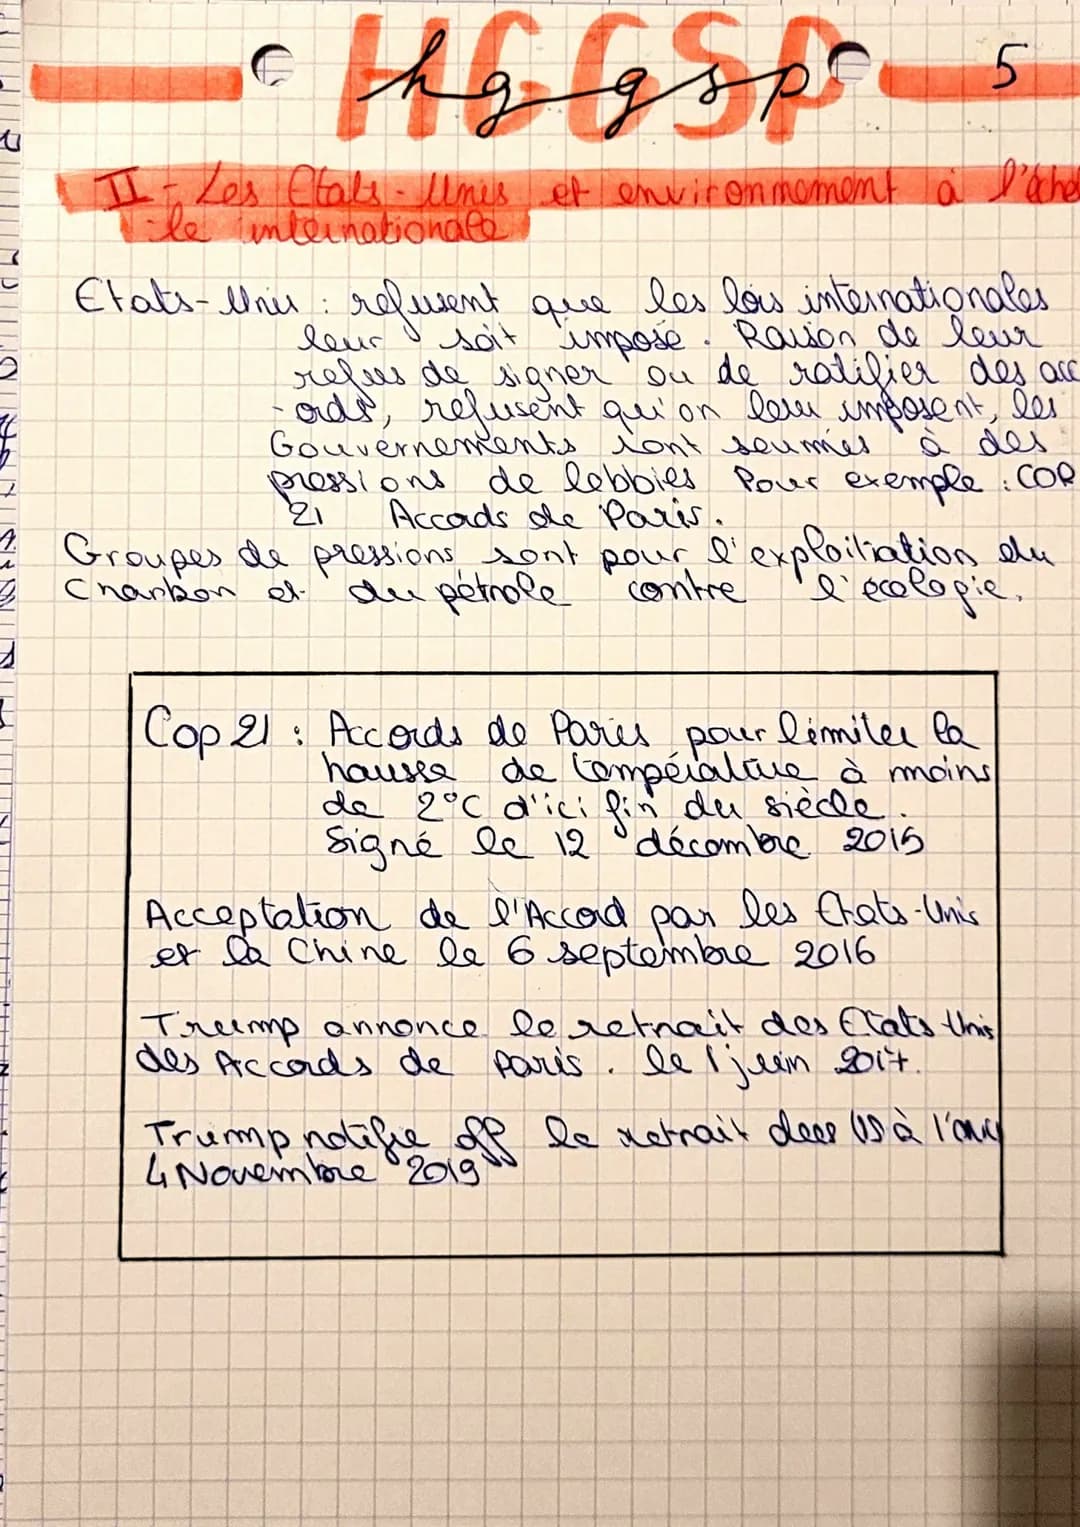 HGGSP
hggsp
5
II - Les Etats-Unis et environnement à l'échel
-le internationale
Etats-Unis : refusent que les lois internationales
leur soit imposé. Raison de leur
refus de signer ou de ratifier des acc
-ords, refusent qu'on leur imposent, les
Gouvernements sont soumies à des
pressions de lobbies Pour exemple : COP
21 Accords de Paris.
Groupes de pressions sont pour l'exploitiation du
Charbon et du pétrole contre l'écologie.
Cop 21 : Accords de Paris pour limiter la
hausse de température à moins
de 2°C d'ici fin du siècle.
Signé le 12 décembre 2015
Acceptation de l'Accord par les Etats-Unis
et la Chine le 6 septembre 2016
Trump annonce le retrait des Etats-Unis
des Accords de Paris. le 1 juin 2017.
Trump notifie off le retrait des US à l'
4 Novembre 2019